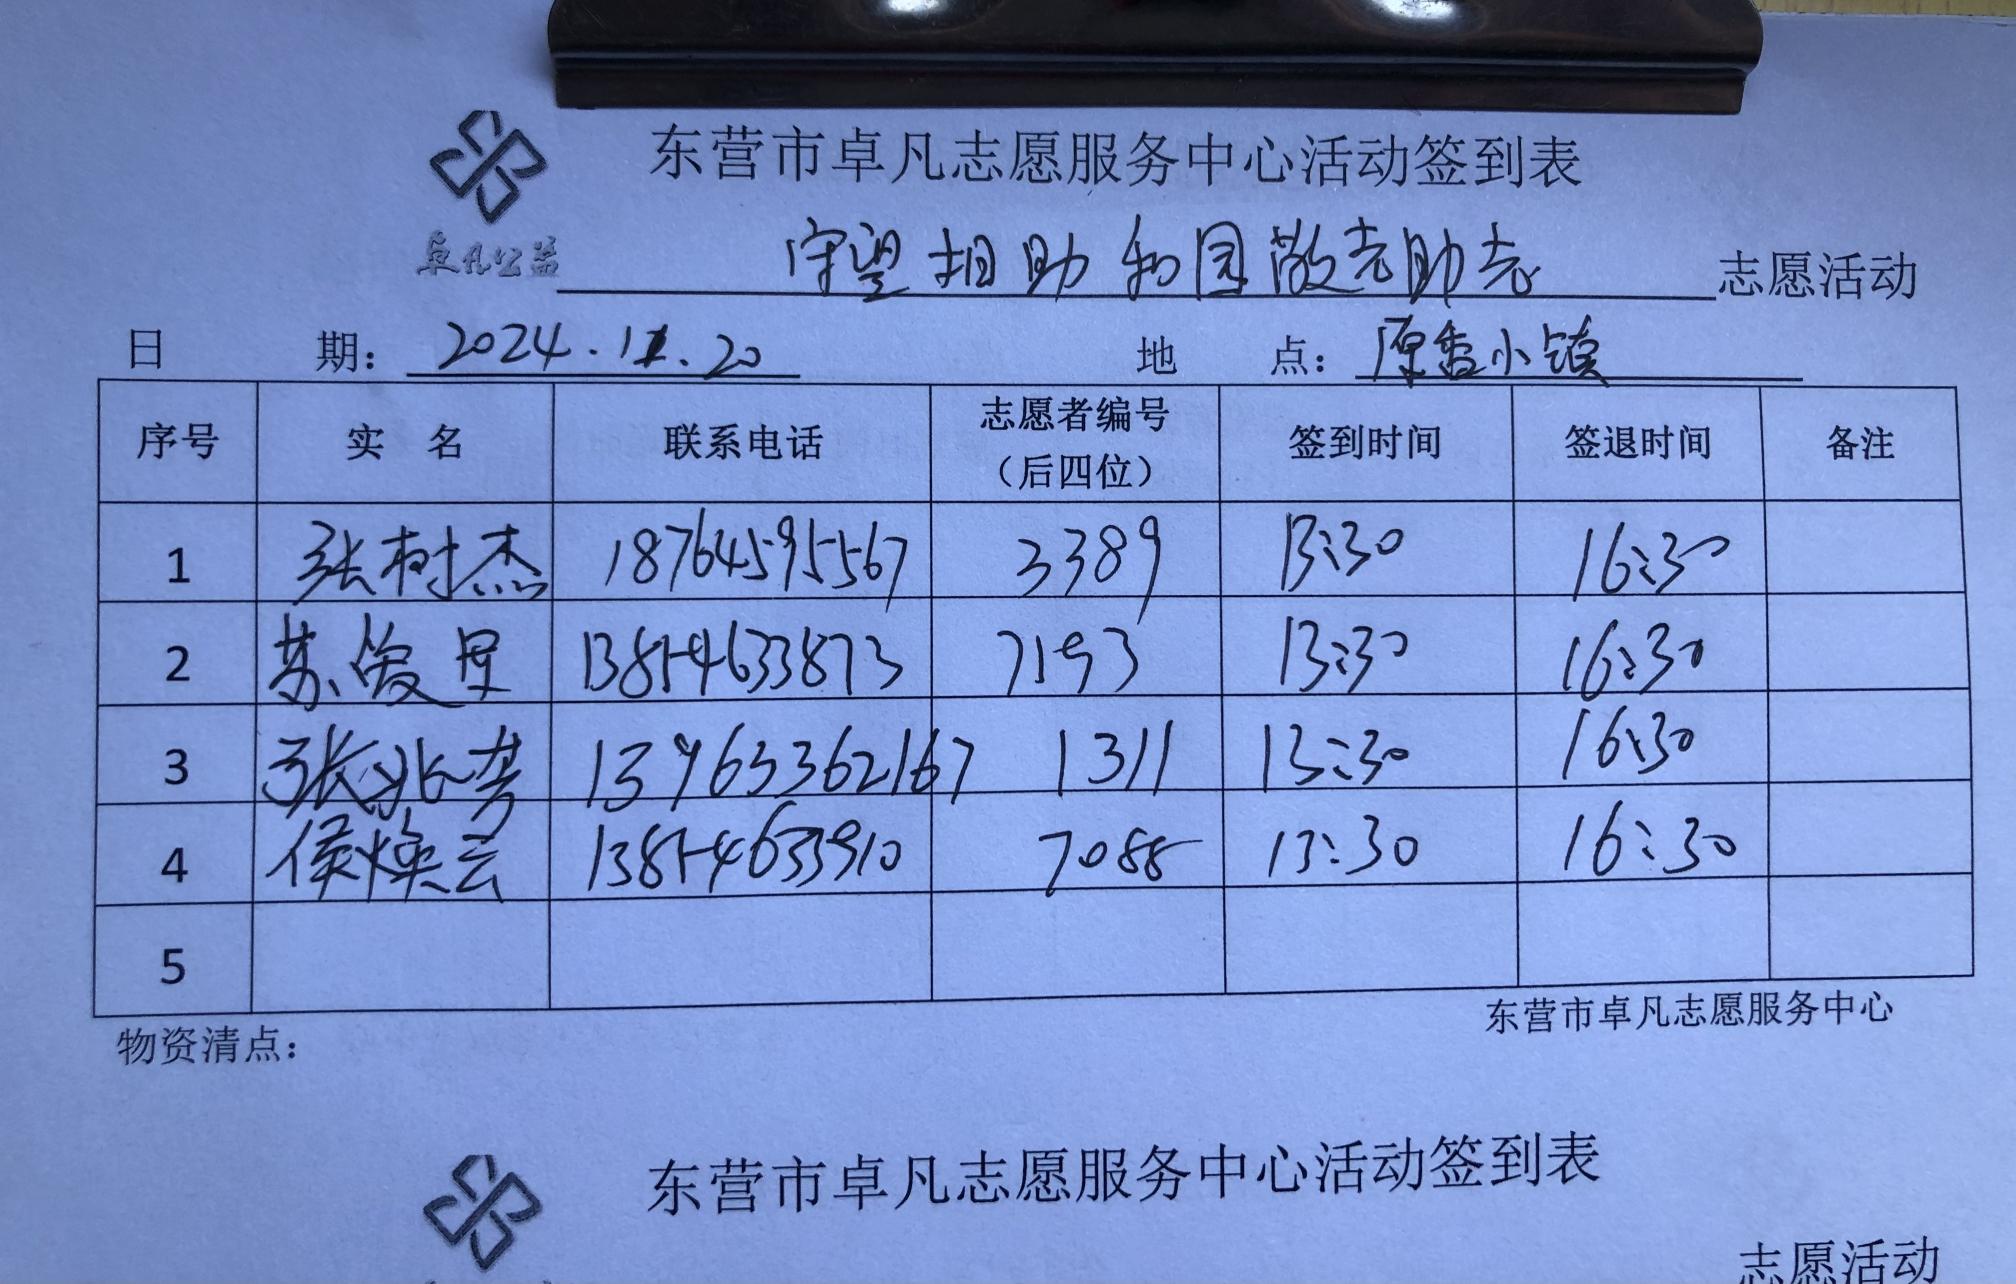 东营市卓凡志愿服务中心活动签到表
卓凡公益
守望相助 和园敬老助老 志愿活动
日 期： 2024.11.20 地 点： 原香小镇
序号 实 名 联系电话 志愿者编号（后四位） 签到时间 签退时间 备注
1 张树杰 18764595567 3389 13:30 16:30
2 苏俊 13854633873 7193 13:30 16:30
3 张兆 13963362167 1311 13:30 16:30
4 侯焕云 13854633910 7088 13:30 16:30
5
东营市卓凡志愿服务中心
物资清点：
东营市卓凡志愿服务中心活动签到表
志愿活动